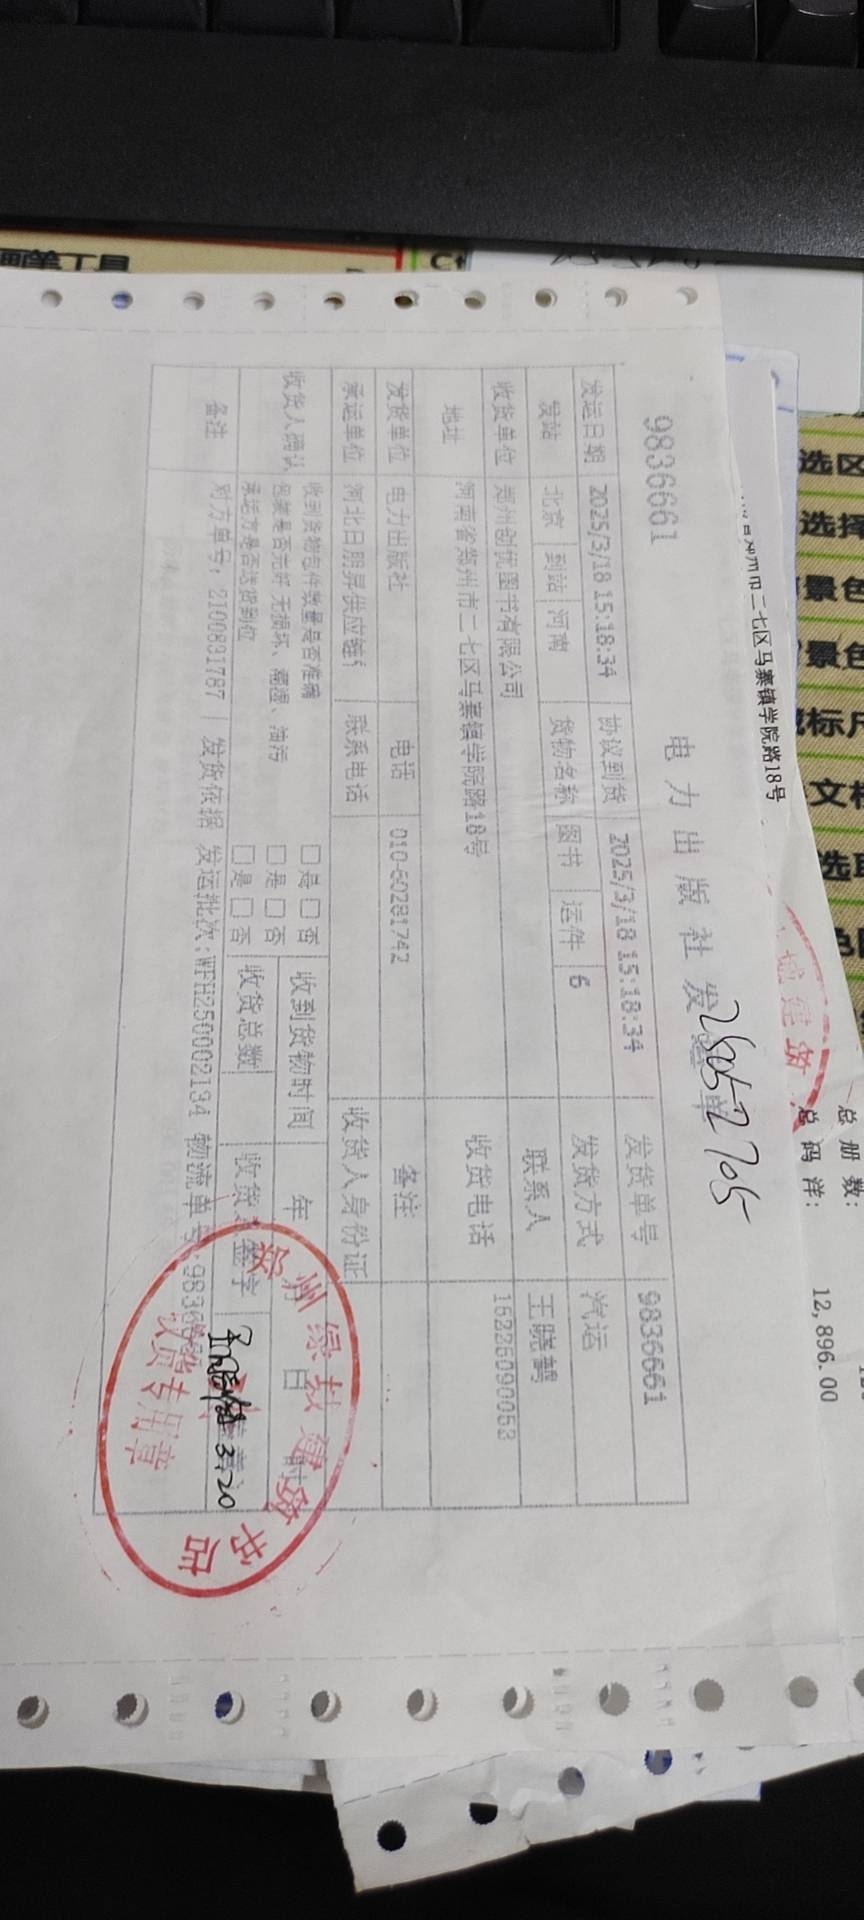 电力出版社发运单
9836661
25052705
发运日期 2025/3/18 15:18:34 协议到货 2025/3/18 15:18:34 发货单号 9836661
发站 北京 到站 河南 货物名称 图书 运件 6 发货方式 汽运
收货单位 郑州创优图书有限公司 联系人 王晓鹤
地址 河南省郑州市二七区马寨镇学院路18号 收货电话 16226090053
发货单位 电力出版社 电话 010-60281742 备注
承运单位 河北日朋昇供应链 联系电话 收货人身份证
收货人确认 收到货物包件数量是否准确 □是 □否 收到货物时间 年 月 日 时
包装是否完好 无损坏、潮湿、油污 □是 □否
承运方是否送货到位 □是 □否 收货总数 收货 签字
3.20
备注 对方单号:2100831787 | 发货依据 发运批次:WFH250002194 物流单号:98366
郑州绿城建筑书店
收货专用章
二七区马寨镇学院路18号
城建筑
总册数:
总码洋: 12,896.00
画笔工具
选区
选择
景色
景色
标尺
文档